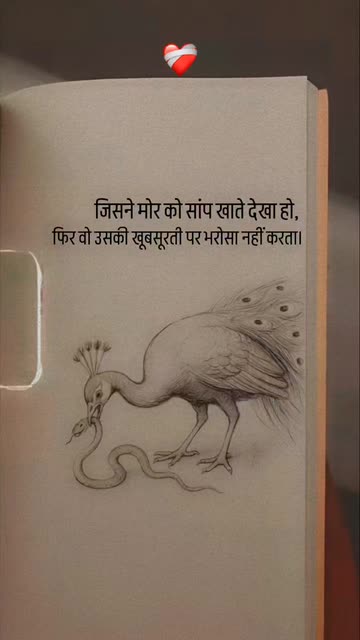 जिसने मोर को सांप खाते देखा हो,
फिर वो उसकी खूबसूरती पर भरोसा नहीं करता।